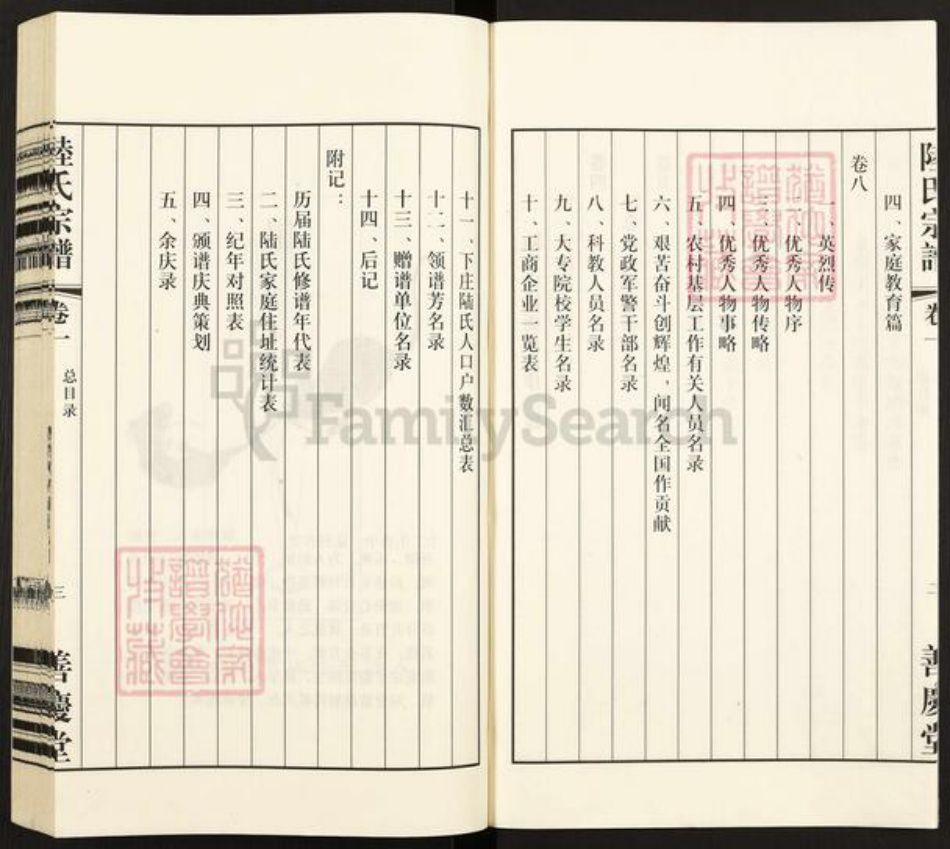 陸氏宗譜
卷
二
善慶堂
四、家庭教育篇
卷八
一、英烈传
二、优秀人物序
三、优秀人物传略
四、优秀人物事略
五、农村基层工作有关人员名录
六、艰苦奋斗创辉煌，闻名全国作贡献
七、党政军警干部名录
八、科教人员名录
九、大专院校学生名录
十、工商企业一览表
十一、下庄陆氏人口户数汇总表
十二、领谱芳名录
十三、赠谱单位名录
十四、后记
附记：
历届陆氏修谱年代表
二、陆氏家庭住址统计表
三、纪年对照表
四、颁谱庆典策划
五、余庆录
陸氏宗譜
卷一
总目录
三
善慶堂
FamilySearch